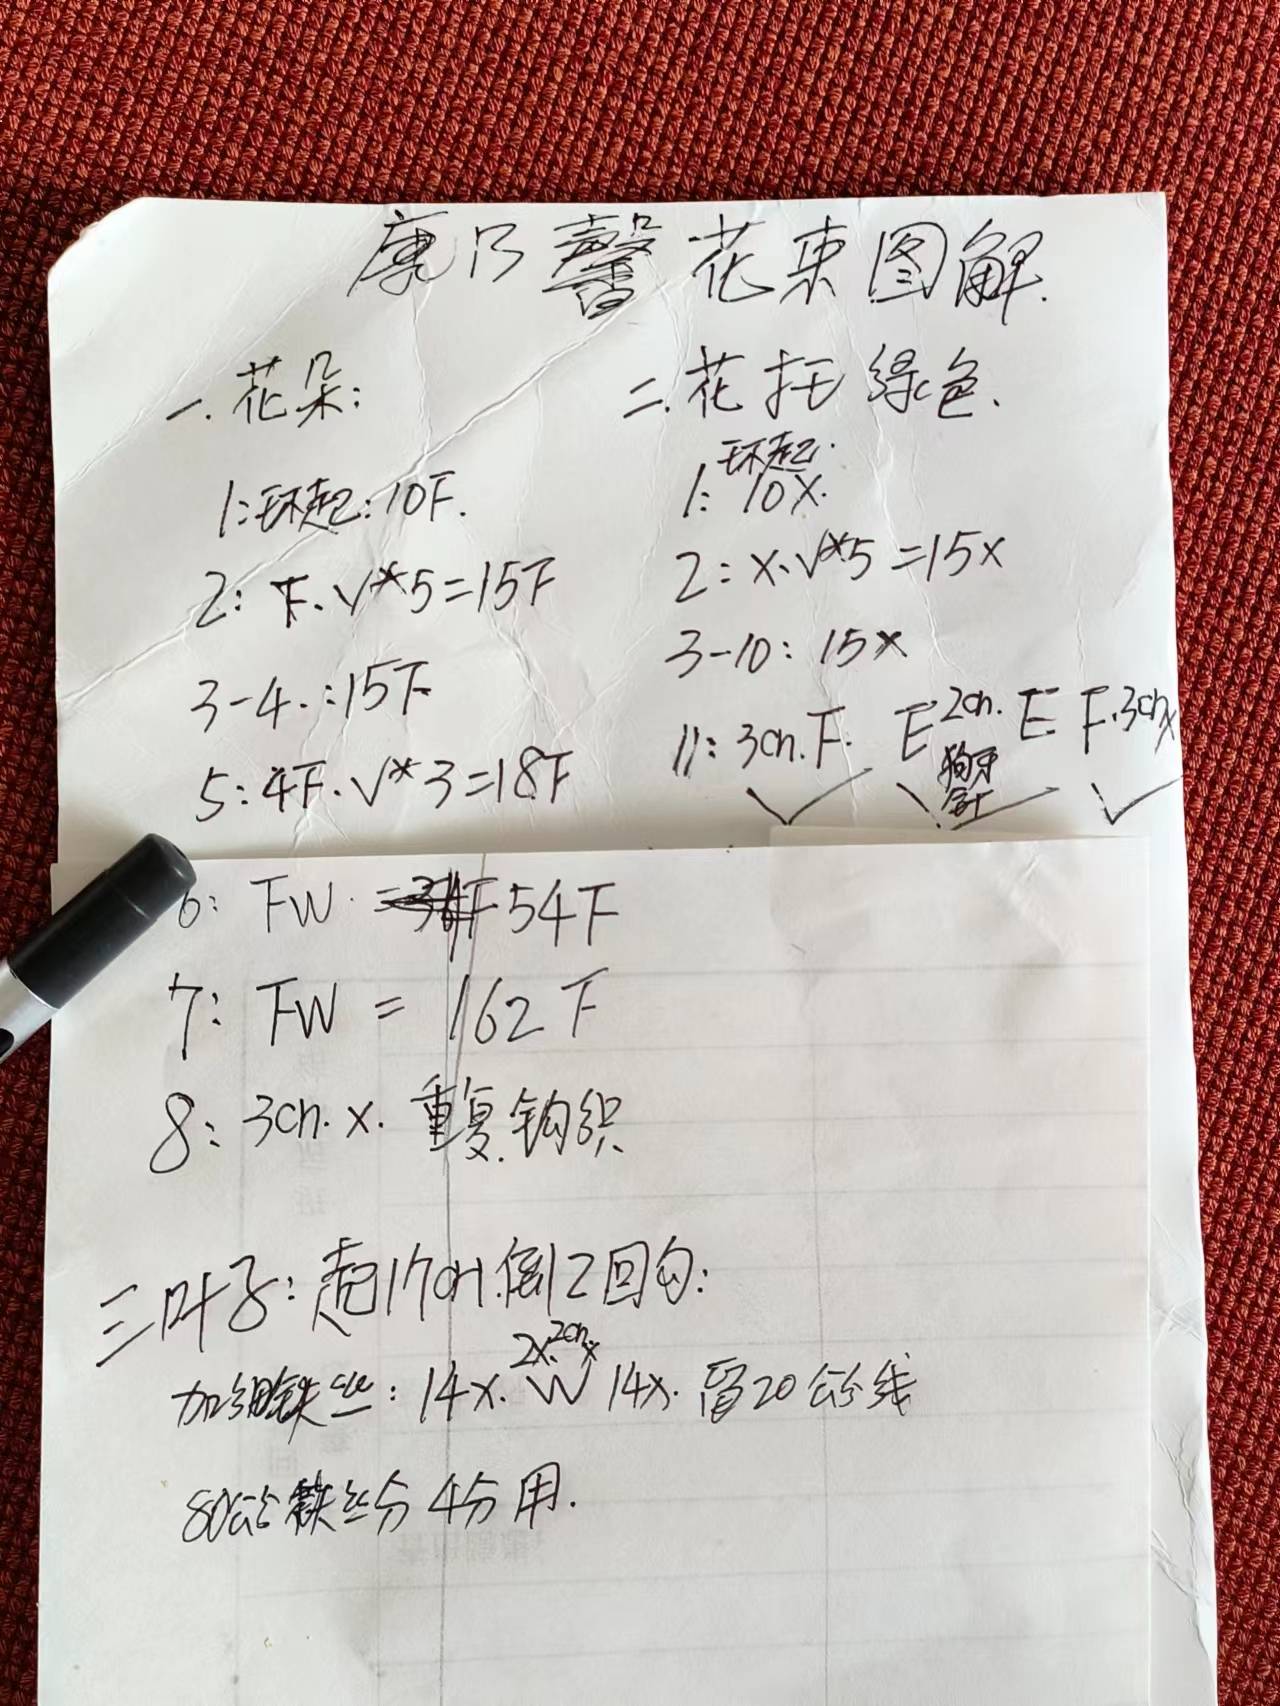 康乃馨花束图解.
一.花朵:
1:环起:10F.
2: F.V*5=15F
3-4.:15F
5:4F.V*3=18F
6: FW.=54F
7: FW = 162F
8: 3cn.x. 重复.钩织
二.花托 绿色.
环起.
1: 10X.
2: X.V*5=15X
3-10: 15X
11: 3cn.F. E 2cn. E F.3cn.x
狗牙
针
三叶子: 起17cn.倒2回勾:
2x.2cn.x
加细铁丝: 14x. W 14x. 留20公分线
80公分铁丝分4分用.